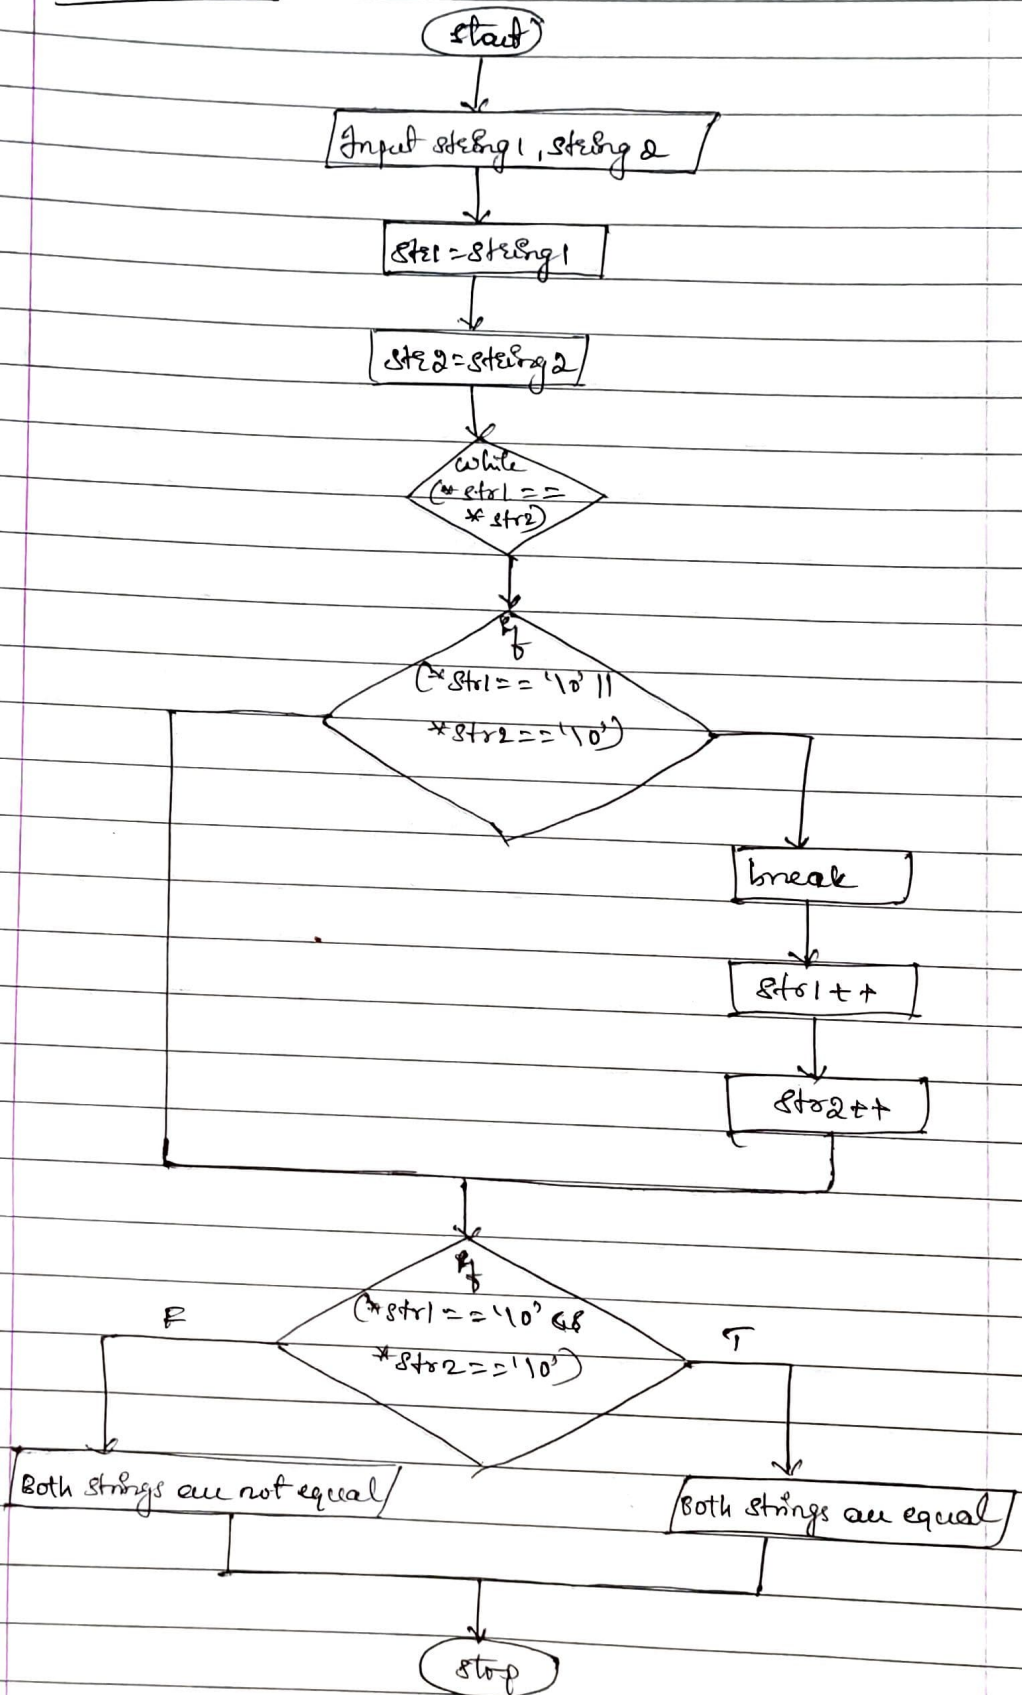 start
Input string1, string2
str1=string1
str2=string2
while
(*str1==
*str2)
if
(*str1=='\0' ||
*str2=='\0')
break
str1++
str2++
if
F
(*str1=='\0' &&
T
*str2=='\0')
Both strings are not equal
Both strings are equal
stop